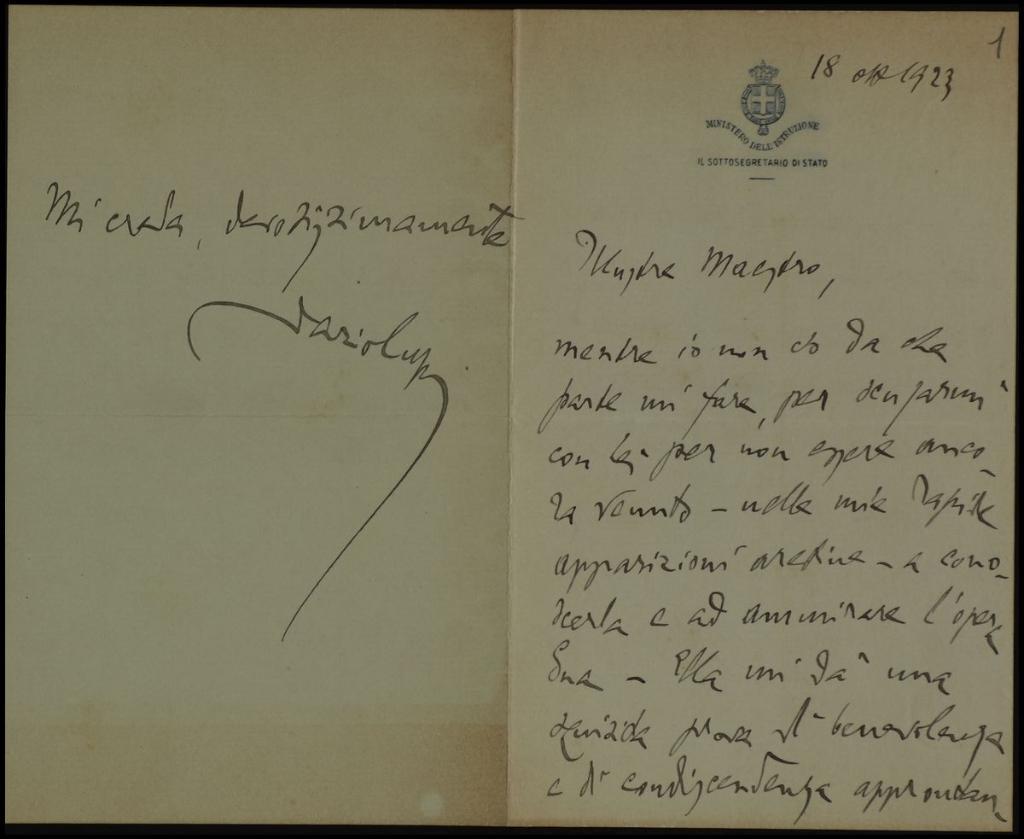 1
18 ott 1923
MINISTERO DELL'ISTRUZIONE
IL SOTTOSEGRETARIO DI STATO
Illustre Maestro,
mentre io non so da che
parte mi fare, per scusarmi
con Lei per non essere anco-
ra venuto - nelle mie rapide
apparizioni aretine - a cono-
scerla e ad ammirare l'opera
Sua - Ella mi dà una
squisita prova di benevolenza
e di condiscendenza approntan-
Mi creda, devotissimamente
Dario Lupi